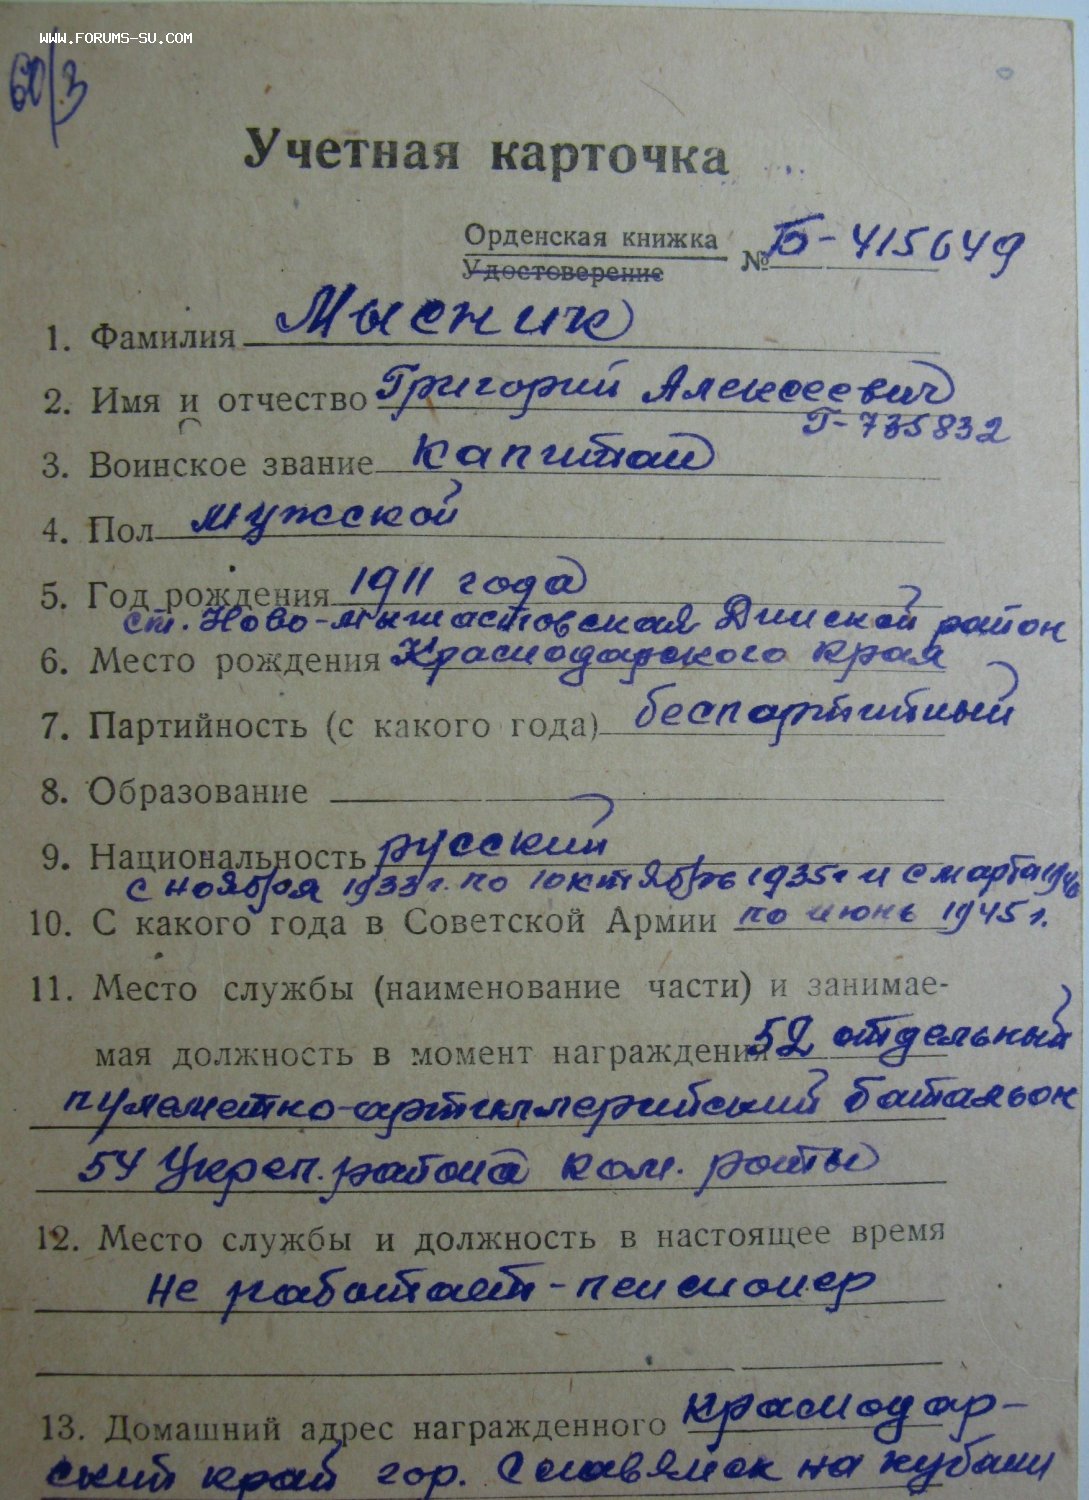 WWW.FORUMS-SU.COM
60/3
Учетная карточка
Орденская книжка
Удостоверение
№ Б-415649
1. Фамилия Мысник
2. Имя и отчество Григорий Алексеевич
Г-735832
3. Воинское звание капитан
4. Пол мужской
5. Год рождения 1911 года
ст. Ново-мышастовская Динской район
6. Место рождения Краснодарского края
7. Партийность (с какого года) беспартийный
8. Образование
9. Национальность русский
с ноября 1933 г. по октябрь 1935 г и с марта
10. С какого года в Советской Армии по июнь 1945 г.
11. Место службы (наименование части) и занимае-
мая должность в момент награждения 52 отдельный
пулеметно-артиллерийский батальон
54 Укреп. района ком. роты
12. Место службы и должность в настоящее время
не работает - пенсионер
13. Домашний адрес награжденного краснодар-
ский край гор. Славянск на кубани